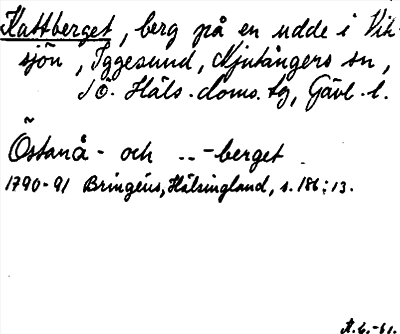 Kattberget, berg på en udde i Vik-
sjön, Iggesund, Njutångers sn,
SÖ. Häls. doms. tg, Gävl. l.
Östanå- och ..-berget
1790-91 Bringéus, Hälsingland, s. 186:13.
A.L.-61.